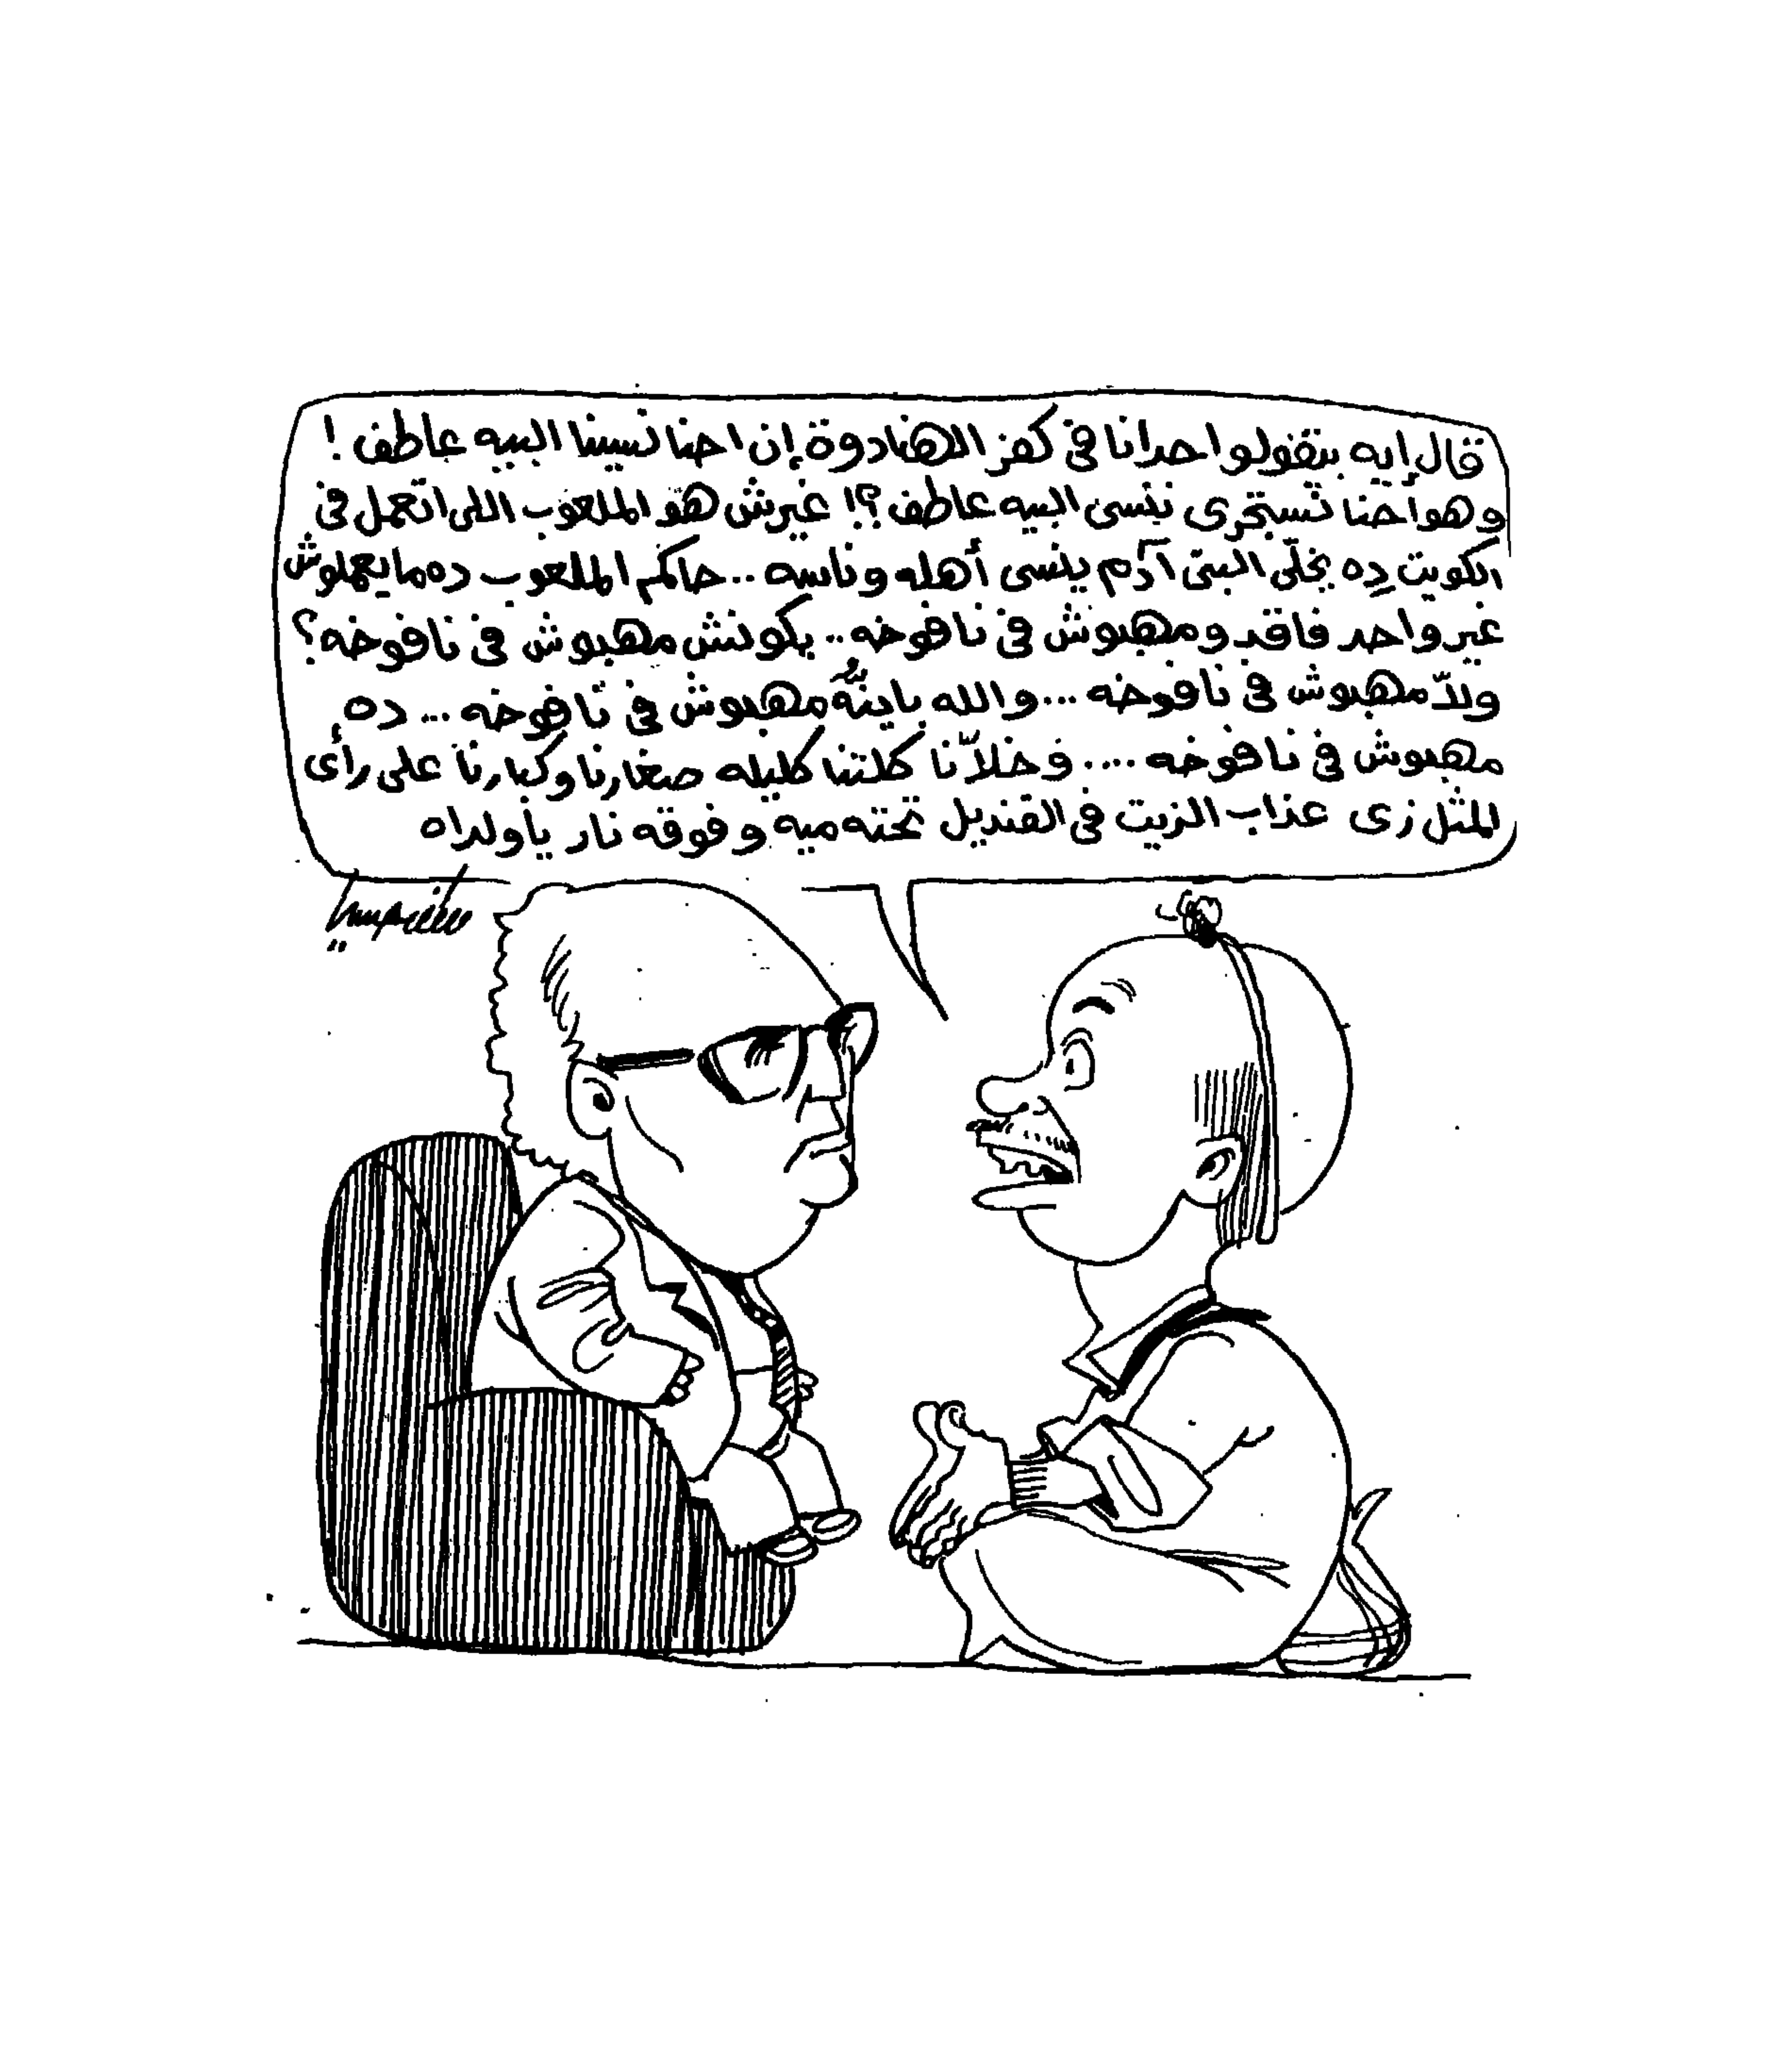 قال إيه بتقولوا حدانا فى كفر الهنادوة إن احنا نسينا البيه عاطف !
وهو احنا نستجرى ننسى البيه عاطف ؟! غيرش هو الملعوب اللى اتعمل فى
الكويت ده يخلّى البنى آدم ينسى أهله وناسه .. حاكم الملعوب ده ما يعملوش
غير واحد فاقد ومهبوش فى نافوخه .. يكونش مهبوش فى نافوخه ؟
ولاّ مهبوش فى نافوخه ... والله باينُّه مهبوش فى نافوخه ... ده
مهبوش فى نافوخه .... وخلاّنا كلتنا كليله صغارنا وكبارنا على رأى
المثل زى عذاب الزيت فى القنديل تحته ميه وفوقه نار يا ولداه